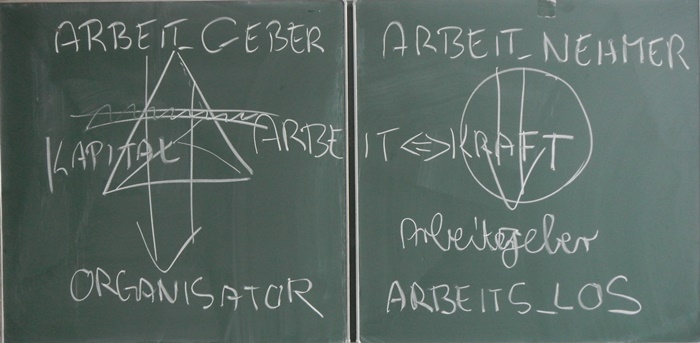 ARBEIT_GEBER
KAPITAL
ORGANISATOR
ARBEIT_NEHMER
ARBEIT ⇔ KRAFT
Arbeitgeber
ARBEITS_LOS